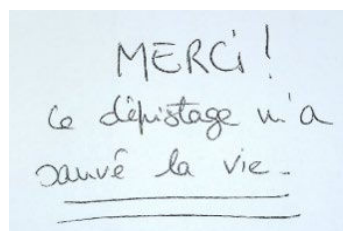 MERCi !
Ce dépistage m'a
sauvé la vie.